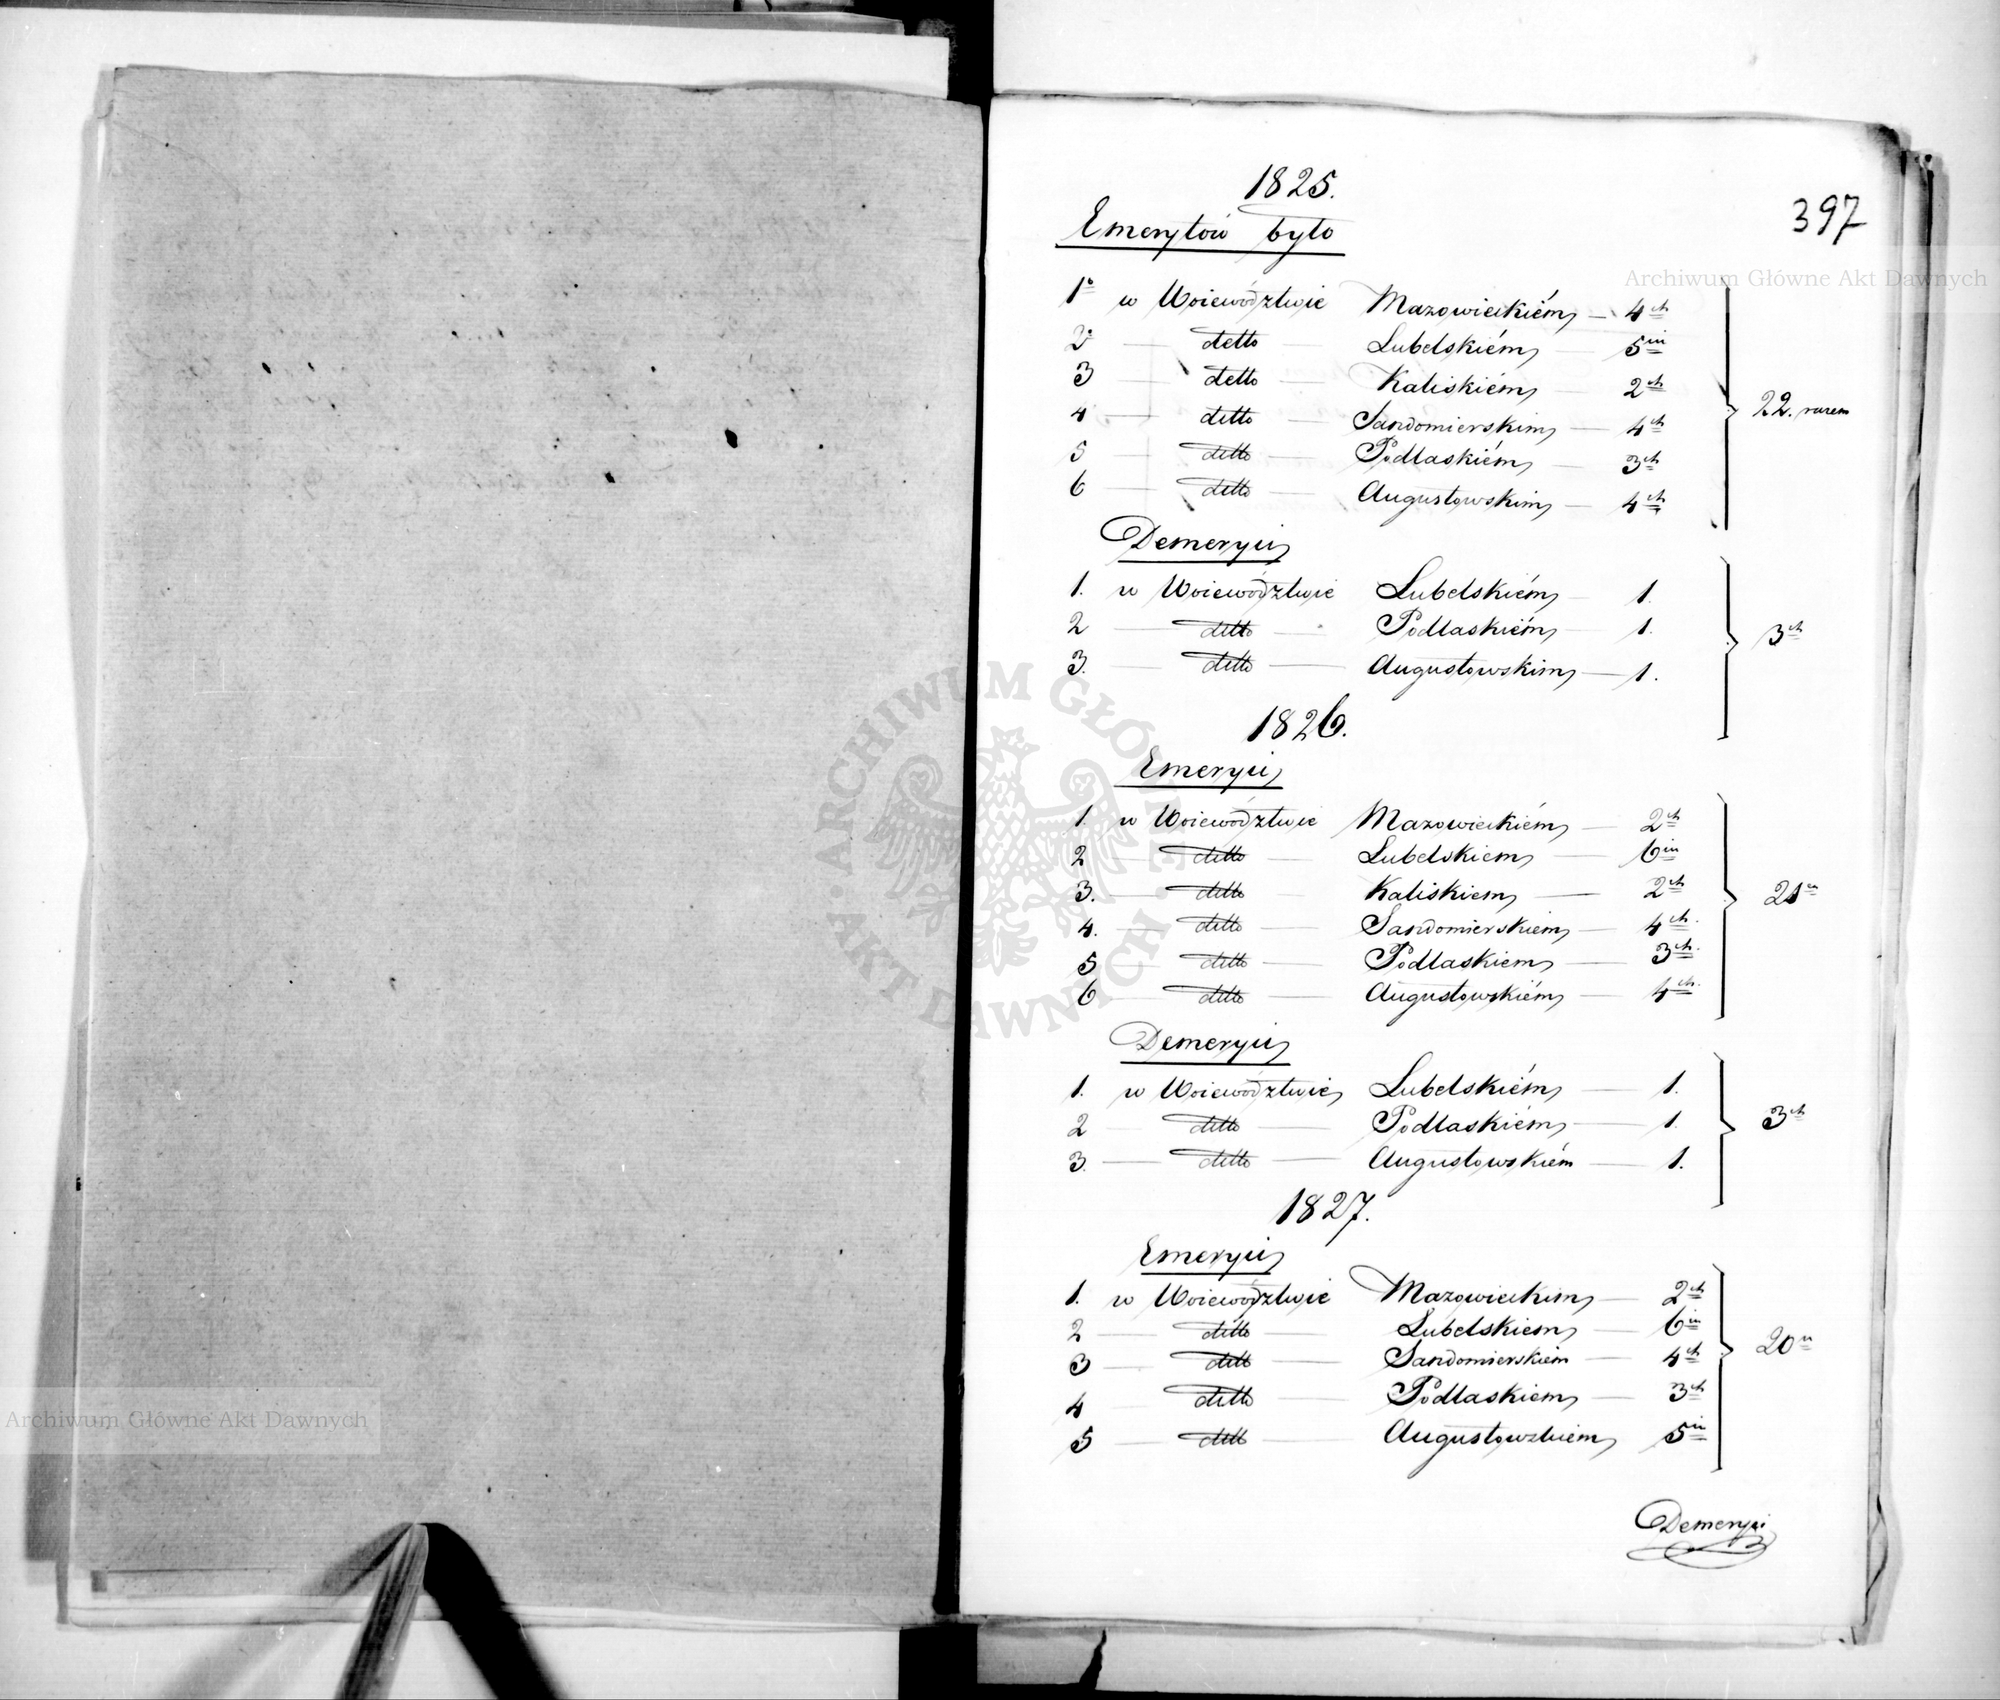 1825.
397
Emerytów było
1° w Woiewództwie Mazowieckiém — 4ch
2° — detto — Lubelskiém — 5iu
3 — detto — Kaliskiém 2ch
4 — detto — Sandomierskim — 4ch
5 — detto — Podlaskiém — 3ch
6 — detto — Augustowskim — 4ch
22. razem
Demeryci
1. w Woiewództwie Lubelskiém — 1.
2 — detto — Podlaskiém — 1.
3. — detto — Augustowskim — 1.
3ch
1826.
Emeryci
1. w Woiewództwie Mazowieckiém — 2ch
2 — detto — Lubelskiem — 6iu
3. — detto — Kaliskiem — 2ch
4. — detto — Sandomierskiem — 4ch.
5 — detto — Podlaskiem — 3ch.
6 — detto — Augustowskiém — 4ch.
21u
Demeryci
1. w Woiewództwie Lubelskiém — 1.
2 — detto — Podlaskiém — 1.
3. — detto — Augustowskiém — 1.
3ch
1827.
Emeryci
1. w Woiewództwie Mazowieckim — 2ch
2 — detto — Lubelskiem — 6iu
3 — detto — Sandomierskiem — 4ch
4 detto — Podlaskiem — 3ch
5 — detto — Augustowskiem 5iu
20u
Demeryci
Archiwum Główne Akt Dawnych
Archiwum Główne Akt Dawnych
ARCHIWUM GŁÓWNE AKT DAWNYCH